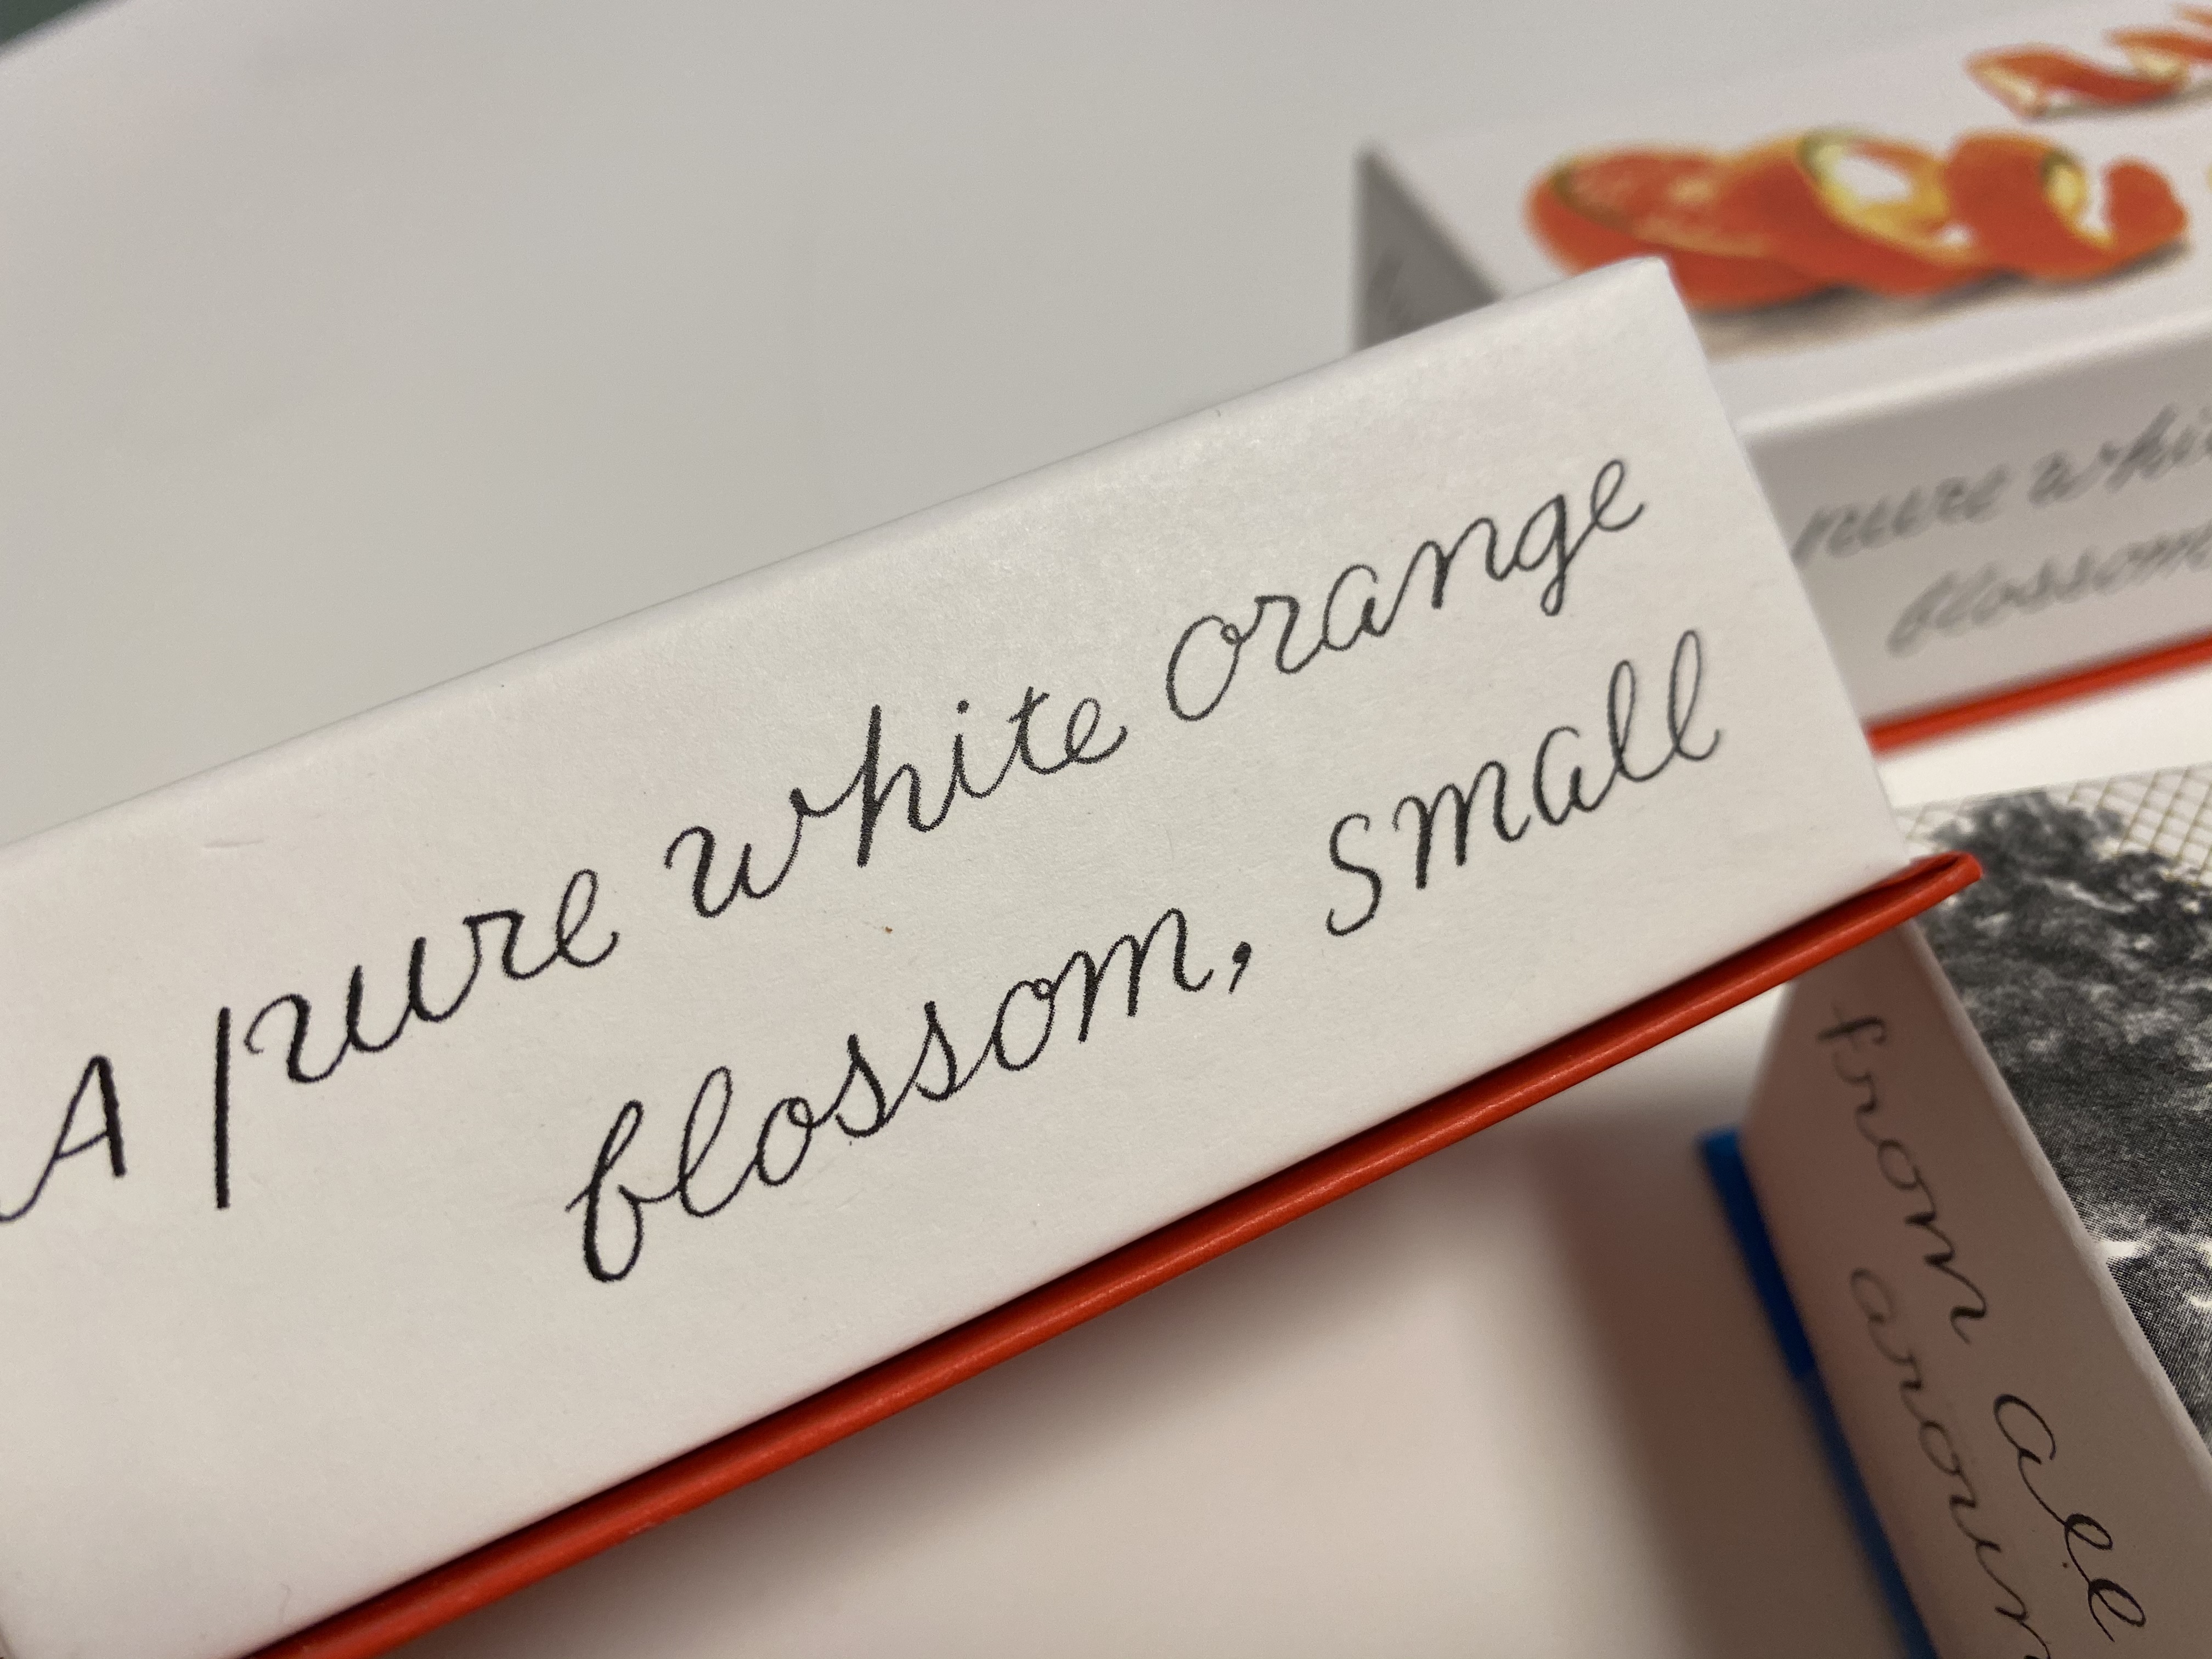 A pure white orange
blossom, small
pure whi
blossom
from all
aroun